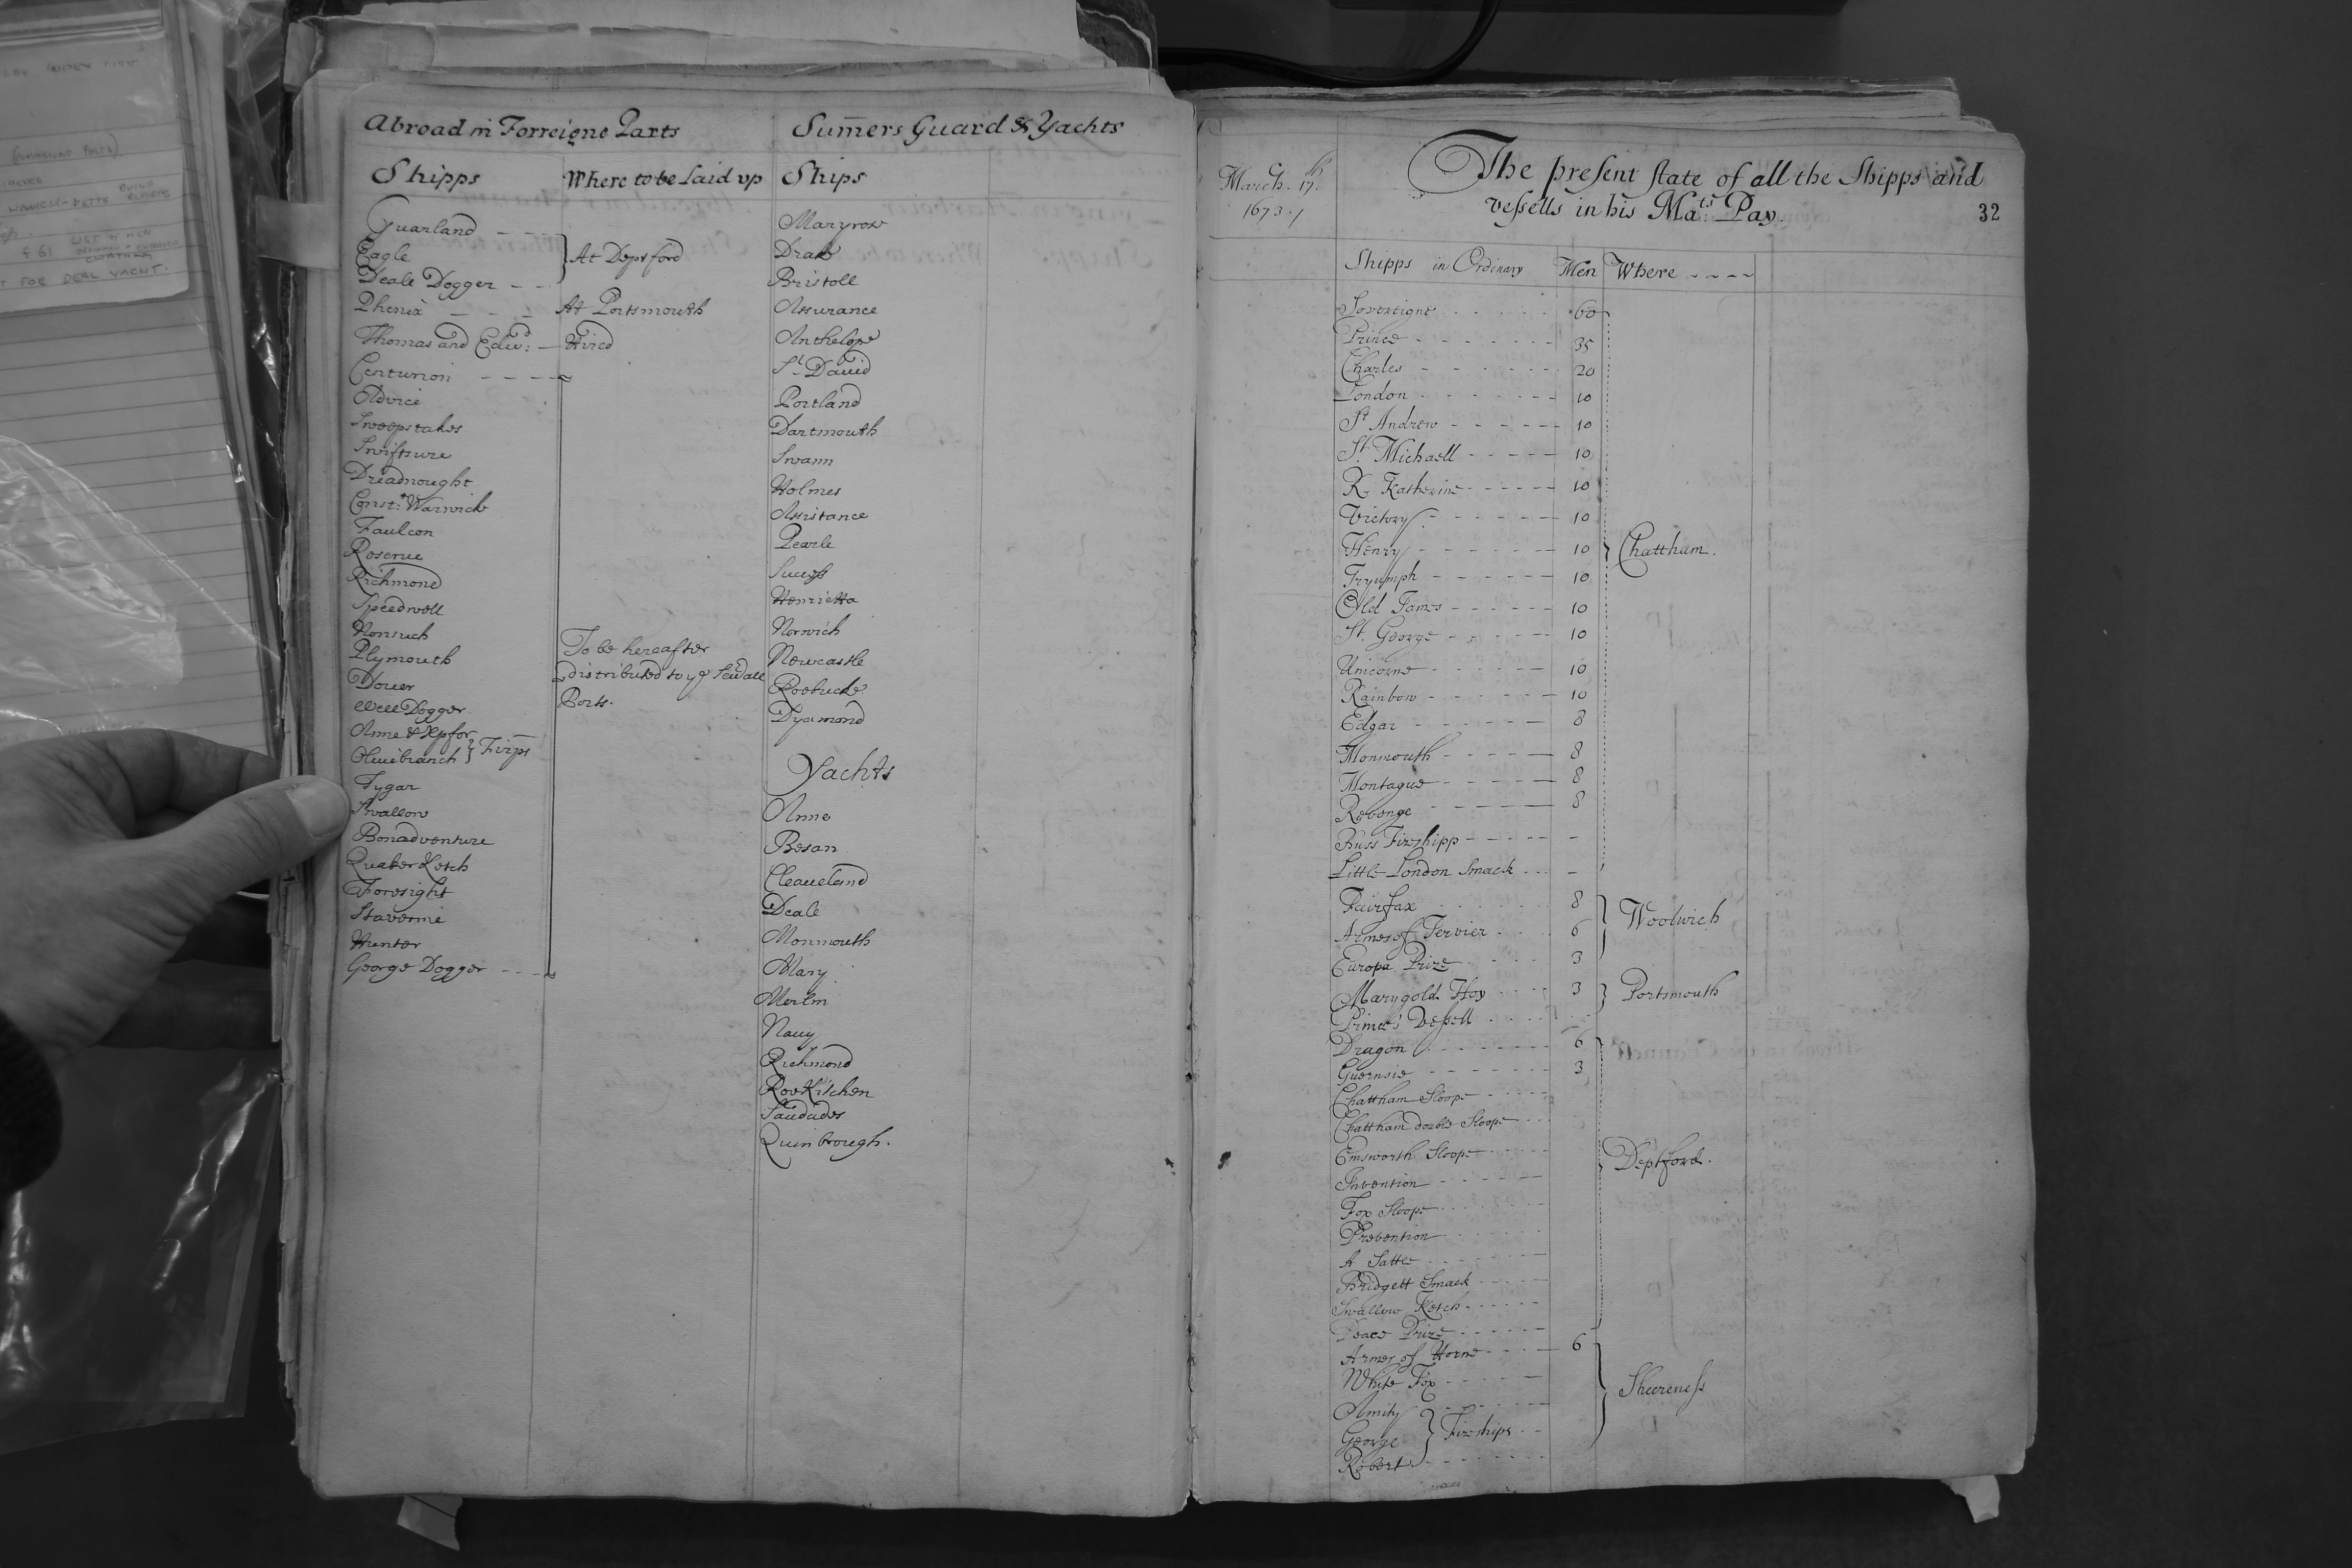 Abroad in Forreigne Parts
Shipps
Where to be Laid vp
Guarland
Eagle
Deale Dogger
At Deptford
Phenix
At Portsmouth
Thomas and Edw:d
Hired
Centurion
Advice
Sweepstakes
Swiftsure
Dreadnought
Const:t Warwick
Faulcon
Reserue
Richmond
Speedwell
Nonsuch
Plymouth
Douer
Well Dogger
Anne & Xpfor
Oliuebranch
Firsps
Tygar
Swallow
Bonadventure
Quaker Ketch
Foresight
Staverine
Hunter
George Dogger
To be hereafter
distributed to ye seuall
Ports.
Sumers Guard & Yachts
Ships
Maryrose
Drake
Bristoll
Assurance
Anthelope
St. Dauid
Portland
Dartmouth
Swann
Holmes
Assistance
Pearle
Sucess
Henrietta
Norwich
Newcastle
Roebuck
Dyamond
Yachts
Anne
Besan
Cleaueland
Deale
Monmouth
Mary
Merlin
Nauy
Richmond
Roe Kitchen
Saudades
Quinbrough.
March. 17th.
1673./
The present state of all the Shipps and
vessells in his Mats. Pay.
32
Shipps in Ordinary Men Where
Sovereigne 60
Prince 35
Charles 20
London 10
St Andrew 10
St. Michaell 10
R. Katherine 10
Victory 10
Henry 10
Tryumph 10
Old James 10
St. George 10
Unicorne 10
Rainbow 10
Edgar 8
Monmouth 8
Montague 8
Revenge 8
Russ Fireshipp -
Little London Smack -
Chattham.
Fairfax 8
Armes of Tervier 6
Europa Prize 3
Woolwich
Marygold Hoy 3
Princes Vessell
Portsmouth
Dragon 6
Guernsie 3
Chattham Sloope
Chattham double Sloope
Emsworth Sloope
Invention
Fox Sloope
Prevention
A Sattee
Bridgett Smack
Swallow Ketch
Peace Prize
Deptford.
Armes of Horne 6
White Fox
Amity
George
Robert
Fireships
Sheerness